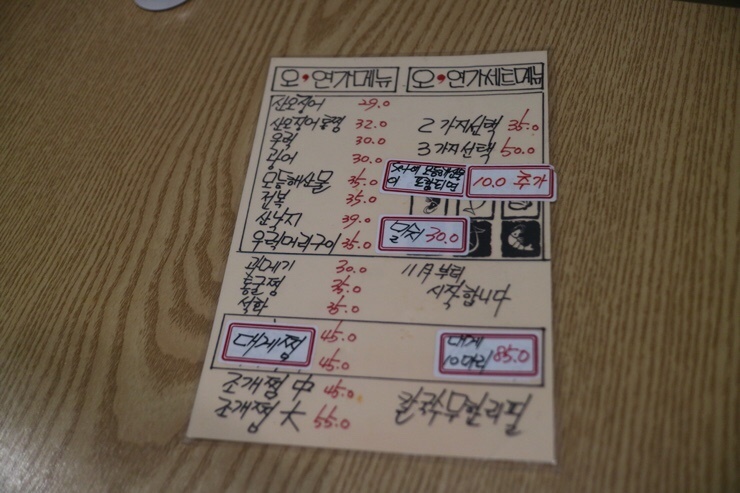 오·연가메뉴
산오징어 29.0
산오징어통찜 32.0
우럭 30.0
광어 30.0
모듬해산물 35.0
전복 35.0
산낙지 39.0
우럭머리구이 35.0
오·연가세트메뉴
2가지선택 35.0
3가지선택 50.0
모듬해산물
이 포함되면
10.0 추가
멸치 30.0
과메기 30.0
통굴찜 35.0
석화 35.0
11月부터
시작합니다
대게찜 45.0
45.0
대게
10마리 85.0
조개찜 中 45.0
조개찜 大 55.0
칼국수무한리필